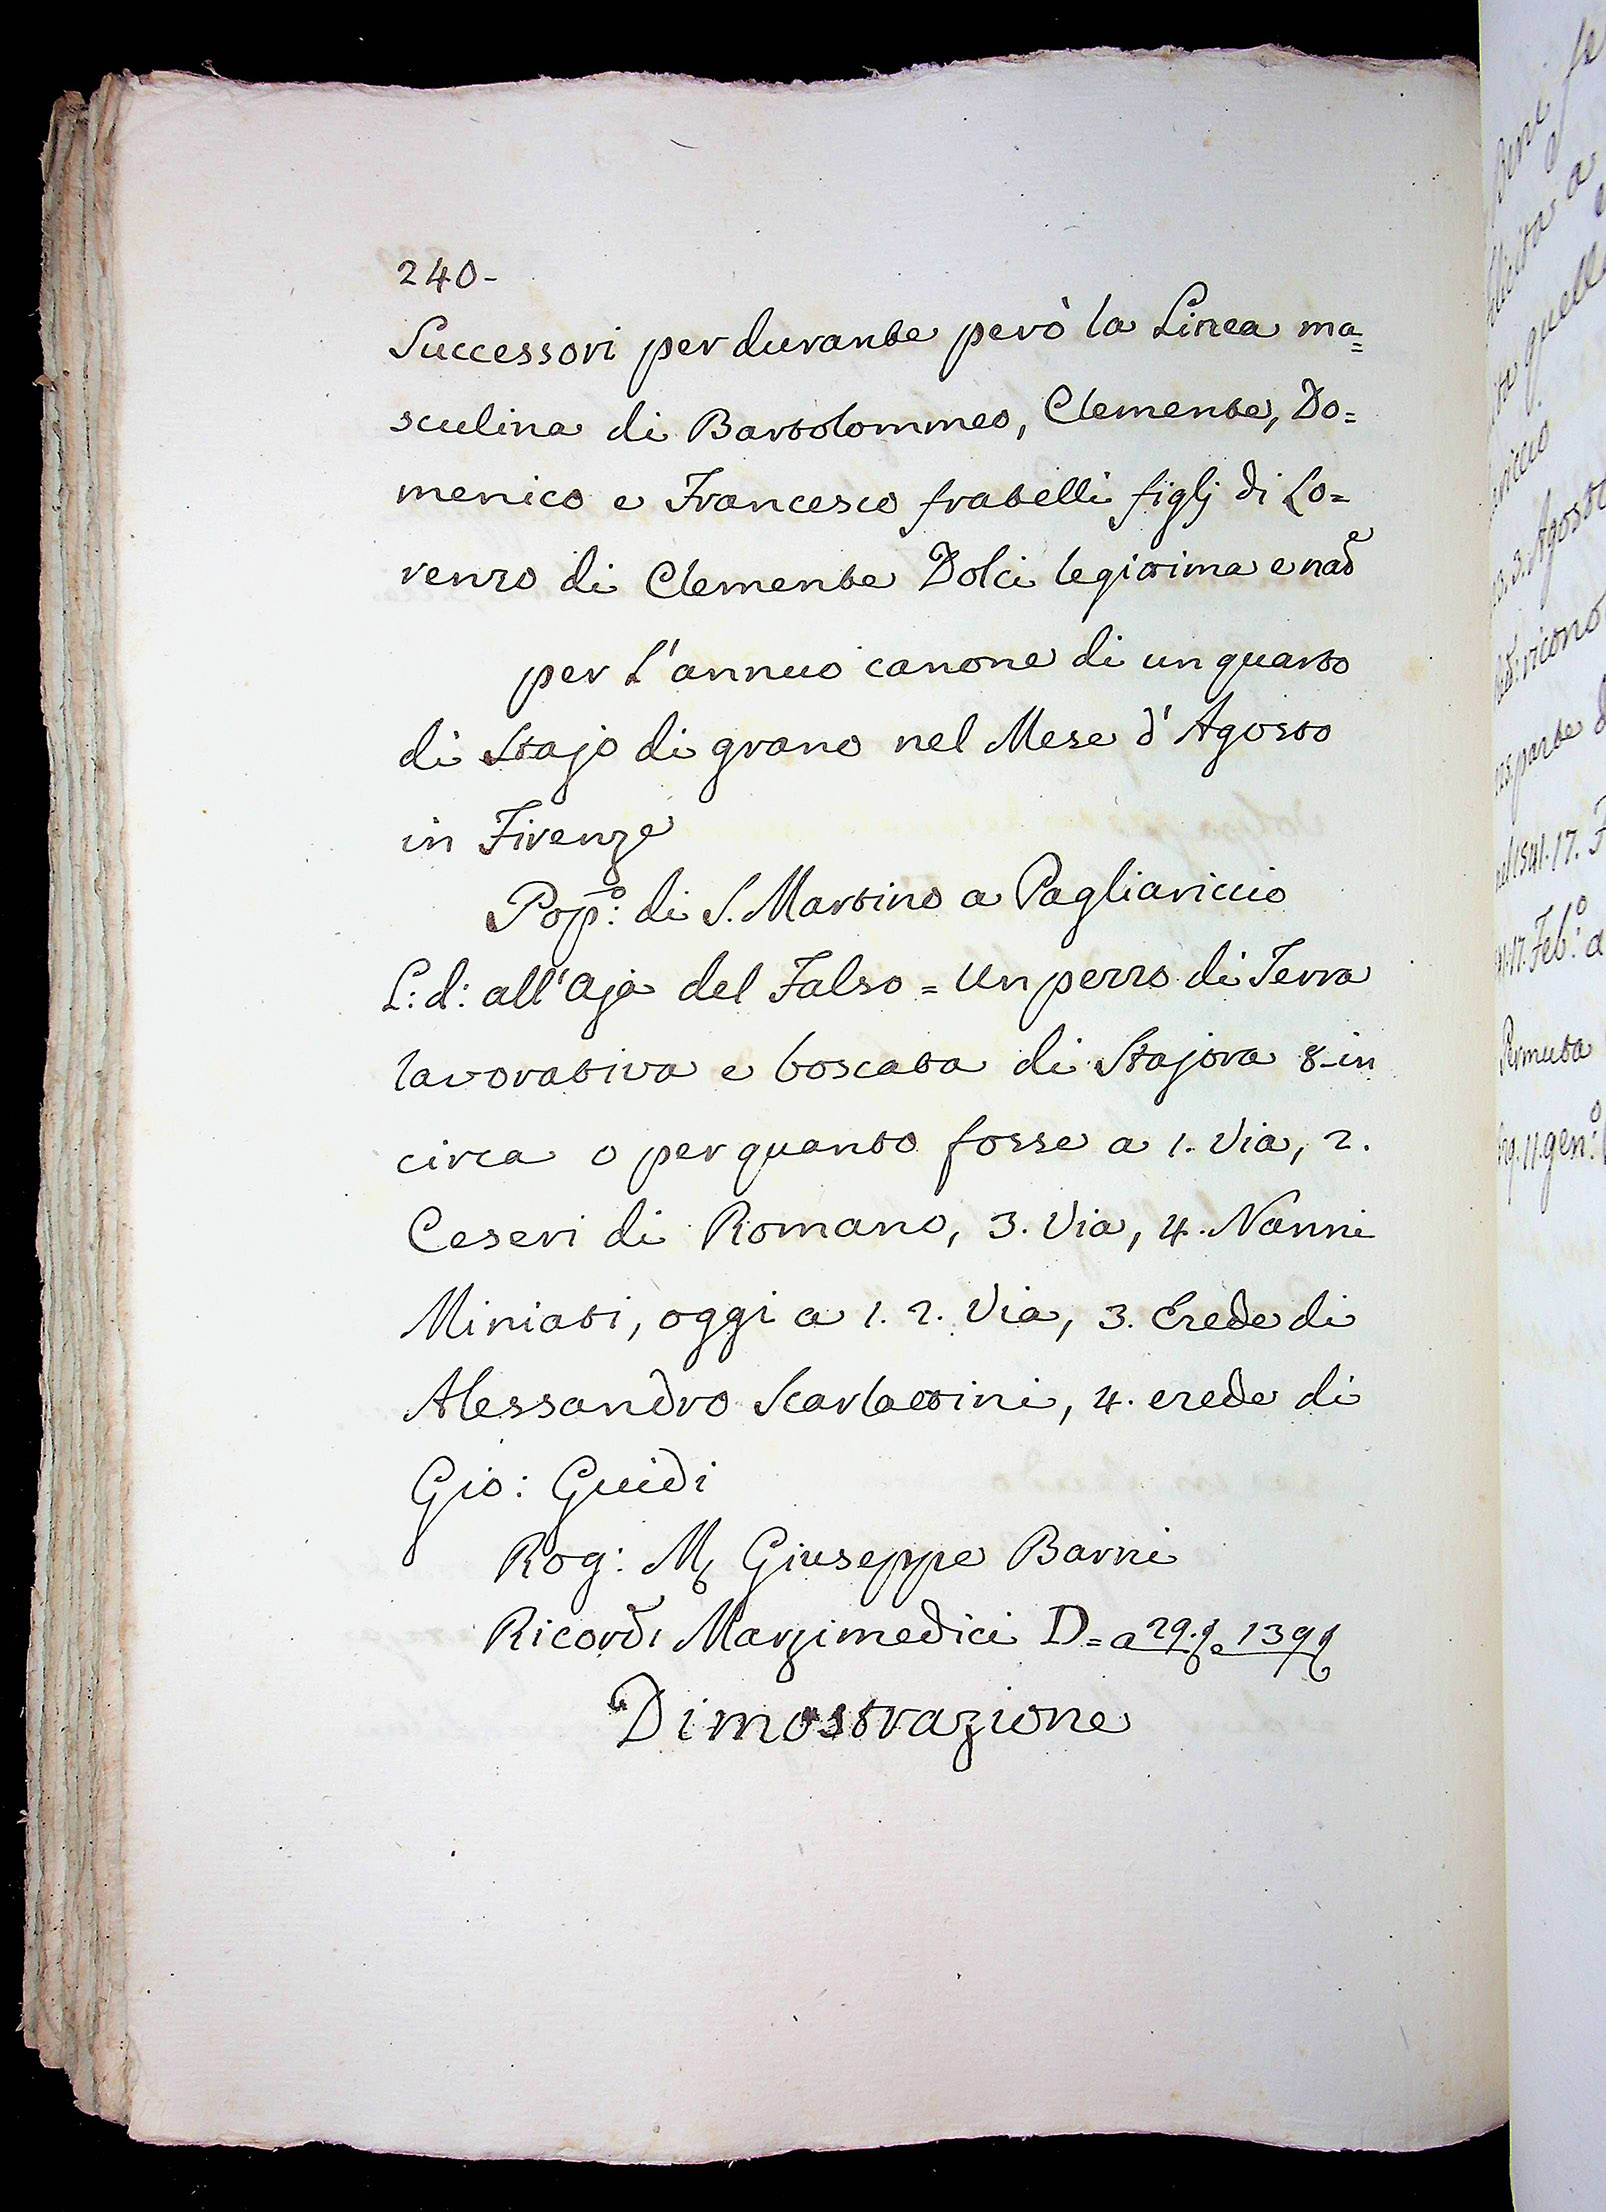 240-
Successori perdurante però la Linea ma=
sculina di Bartolommeo, Clemente, Do=
menico e Francesco fratelli figlj di Lo=
renzo di Clemente Dolci legittima e nat^e
per l'annuo canone di un quarto
di Stajo di grano nel Mese d'Agosto
in Firenze
Pop:^o di S. Martino a Pagliariccio
L: d: all'Aja del Falso = Un pezzo di Terra
lavorativa e boscata di Stajora 8 - in
circa o per quanto fosse a 1. Via, 2.
Ceseri di Romano, 3. Via, 4. Nanni
Miniati, oggi a 1. 2. Via, 3. Erede di
Alessandro Scarlattini, 4. erede di
Gio: Guidi
Rog: M Giuseppe Barni
Ricordi Marzimedici D = a 29. e 139
Dimostrazione
quell
3. Agosto
ricono
parte d
1541. 17. F
17. Feb:^o a
Permuta
11. gen:^o